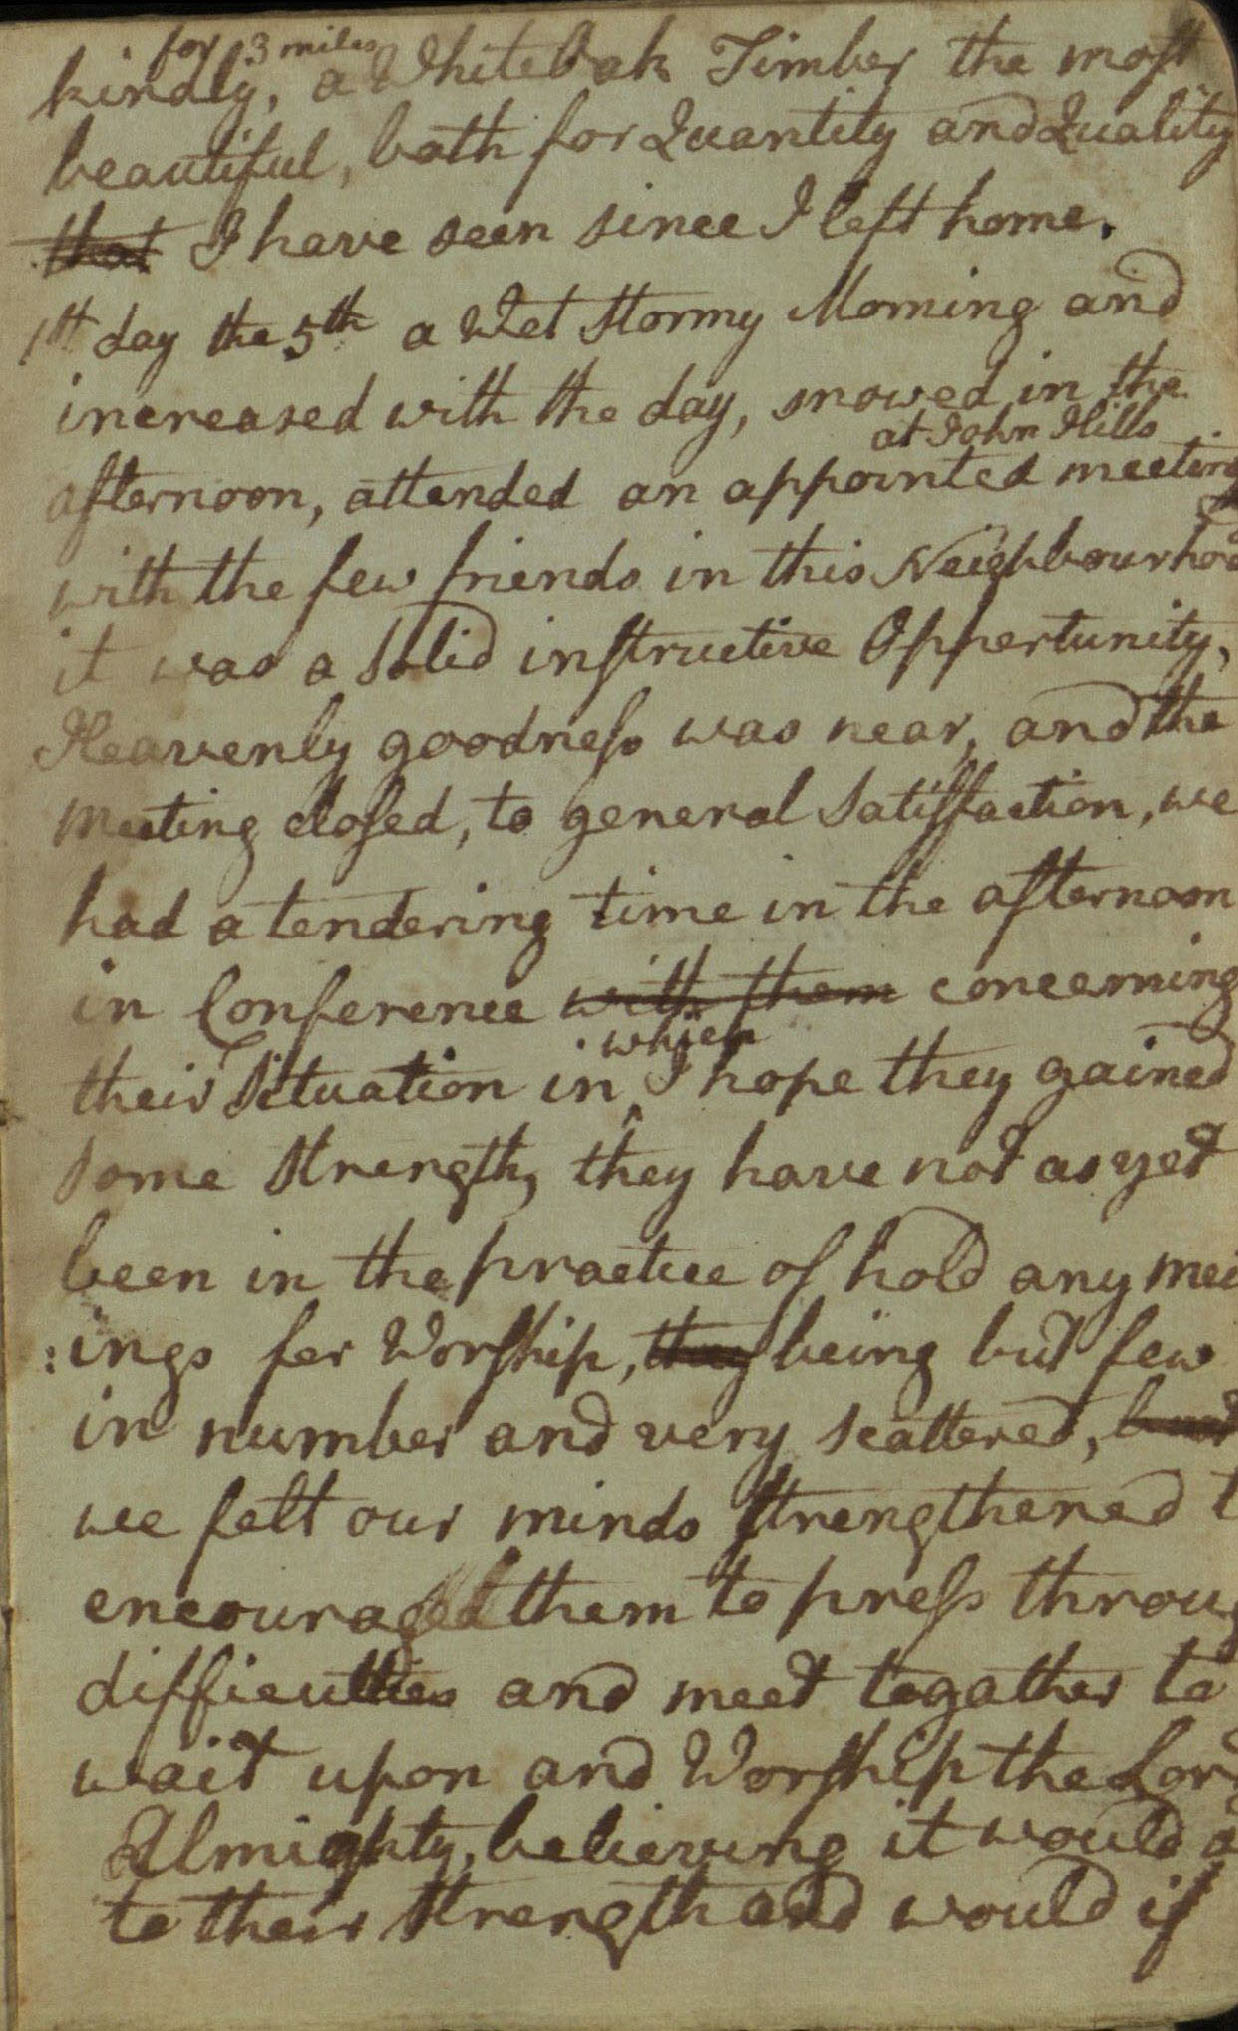 for 3 miles
kindly, a White Oak Timber the most
beautiful, both for Quantity and Quality
that I have seen since I left home.
1st day the 5th a Wet stormy Morning and
increased with the day, snowed in the
at John Hills
afternoon, attended an appointed meeting
with the few friends in this Neighbourhood
it was a solid instructive Oppertunity,
Heavenly goodness was near, and the
meeting closed, to general satisfaction, we
had a tendering time in the afternoon
in Conference with them concerning
which
their Situation in ‸ I hope they gained
some strength, they have not as yet
been in the practice of hold any mee
:ings for Worship, they being but few
in number and very scattered, but
we felt our minds strengthened t
encouraged them to press throug
difficulties and meet togather to
wait upon and Worship the Lord
Almighty, believing it would a
to their strength and would if